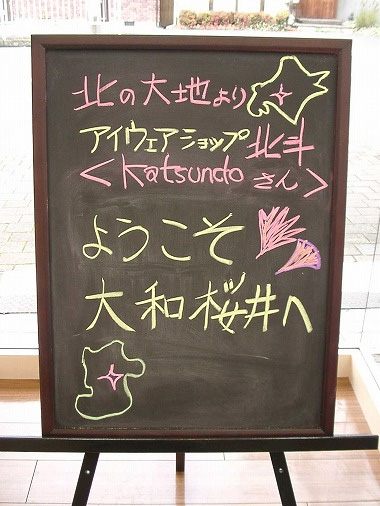 北の大地より
アイウェアショップ北斗
<Katsundoさん>
ようこそ
大和桜井へ